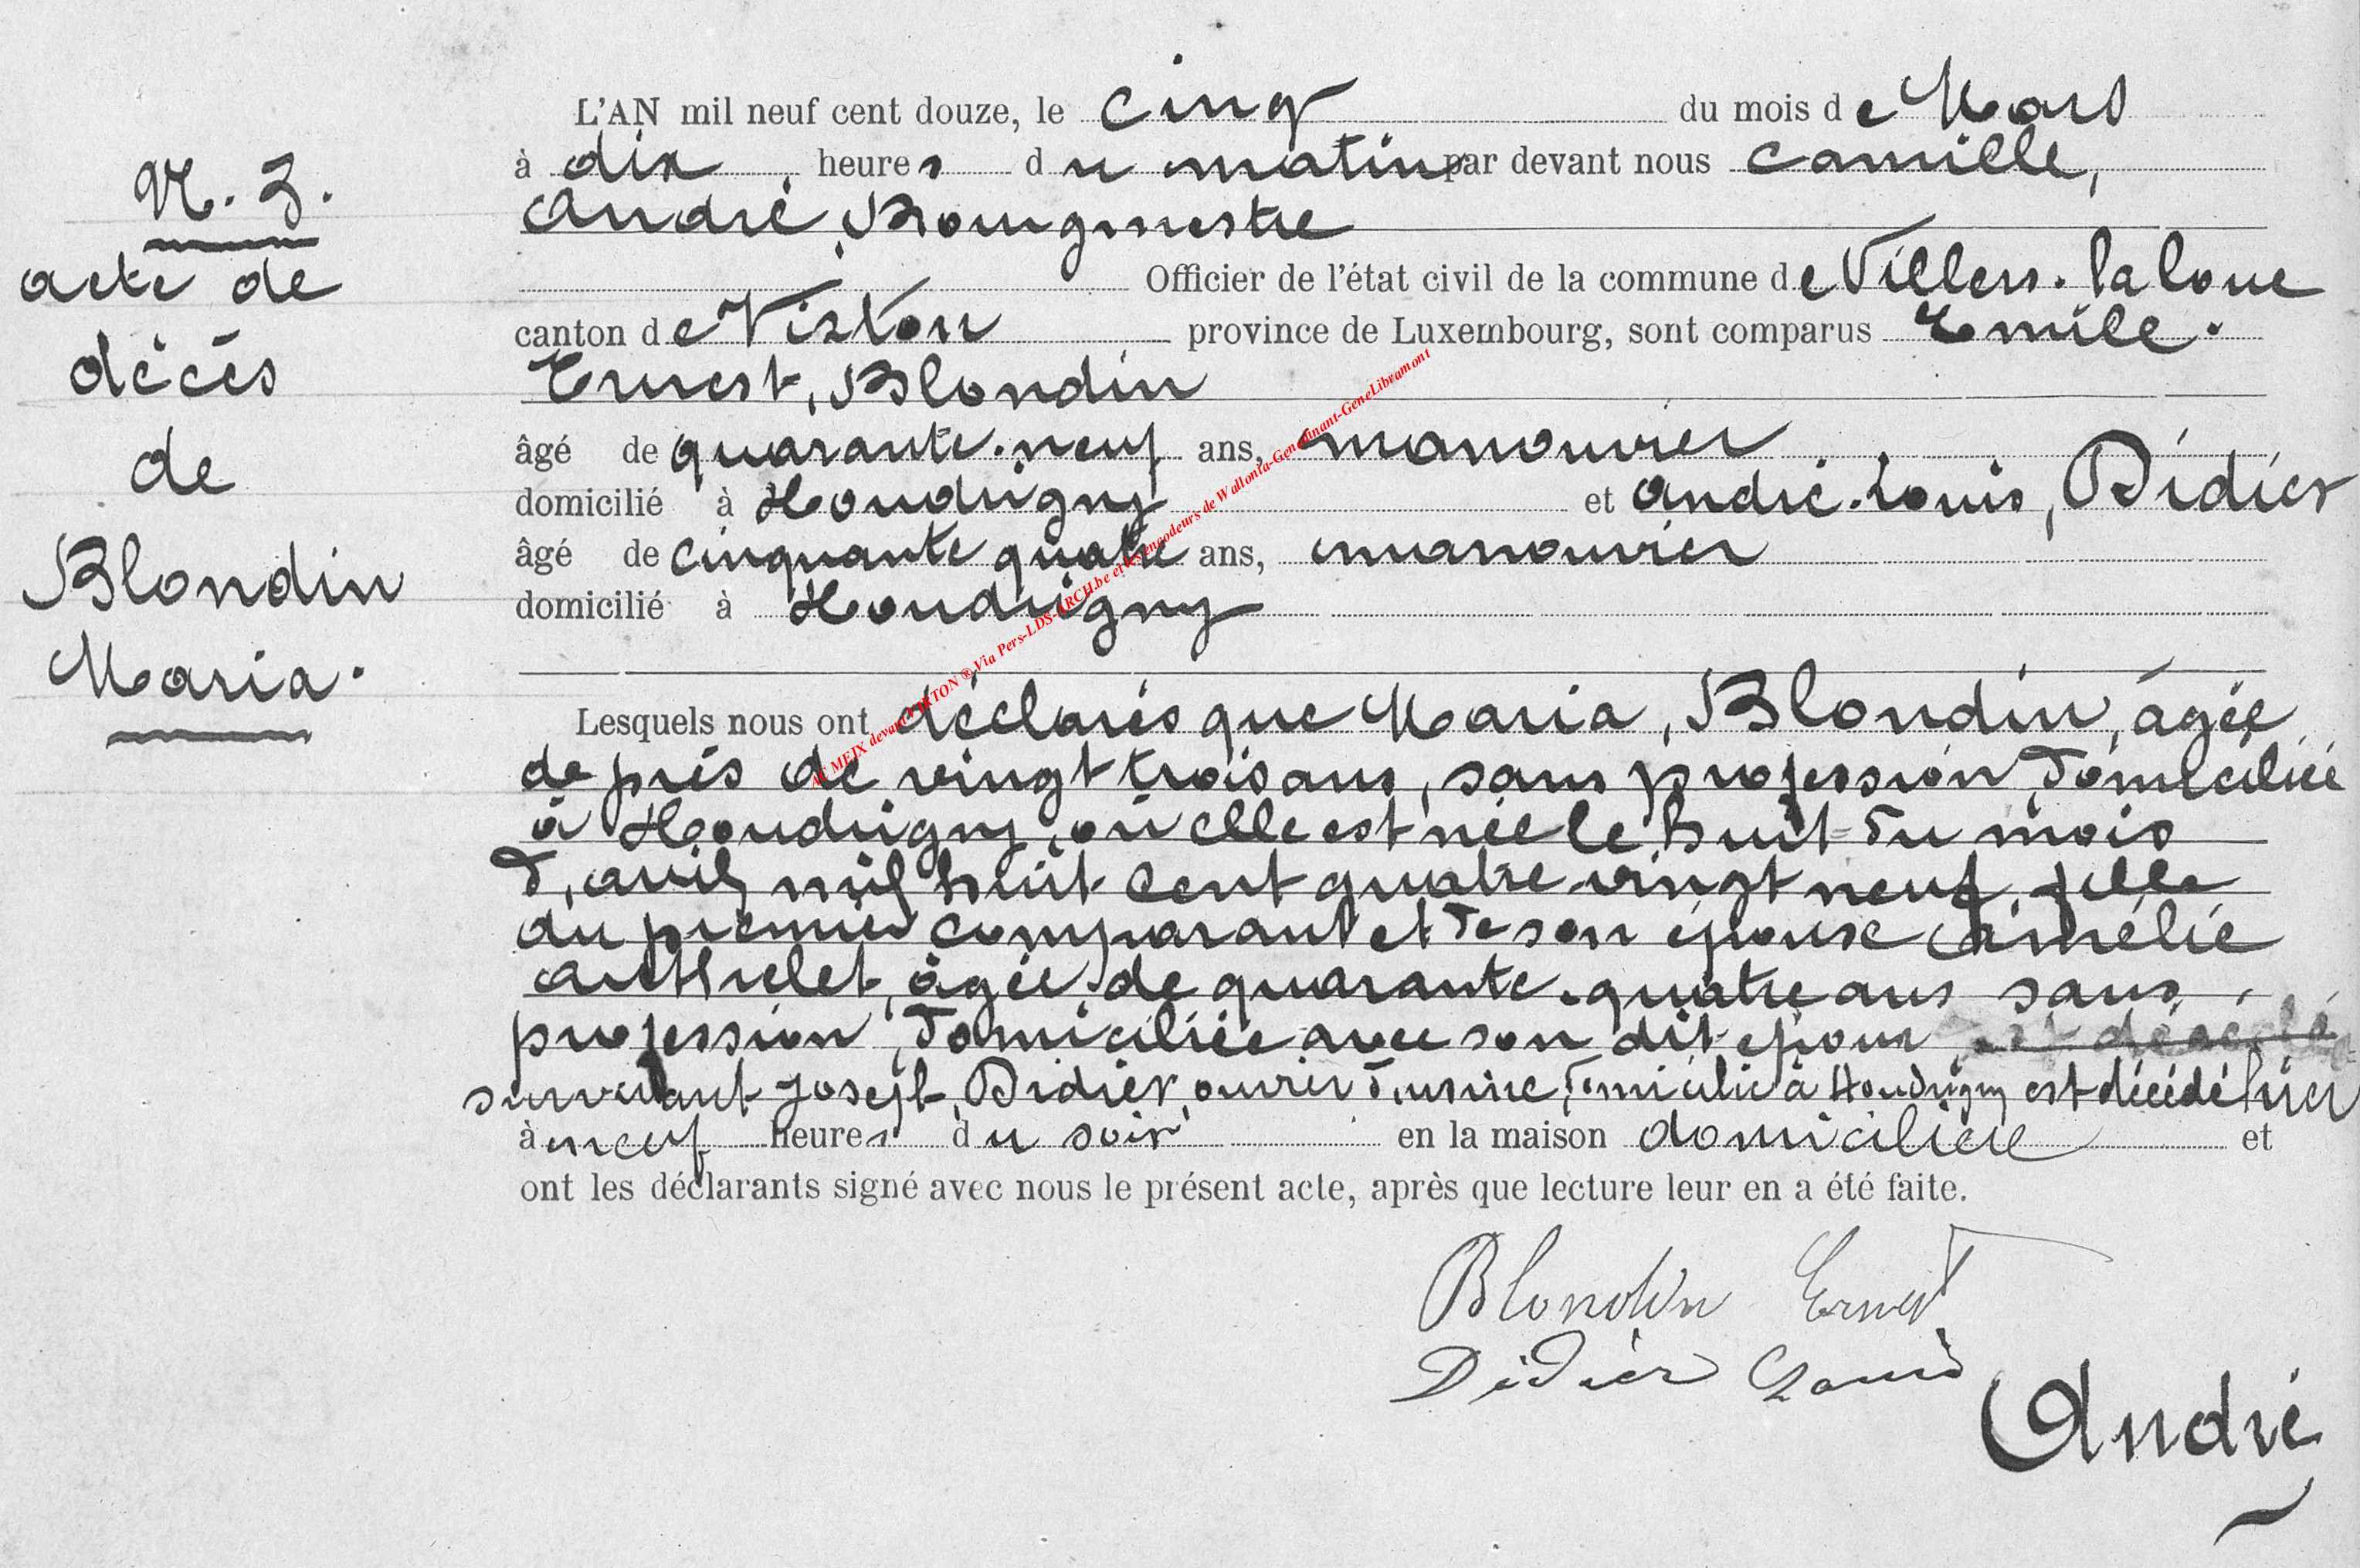 N. 3.
acte de
décès
de
Blondin
Maria.
L'AN mil neuf cent douze, le cinq du mois de Mars
à dix heures du matin par devant nous Camille,
André, Bourgmestre
Officier de l'état civil de la commune de Villers-la loue
canton de Virton province de Luxembourg, sont comparus Emile.
Ernest, Blondin
âgé de quarante-neuf ans, manouvrier
domicilié à Houdrigny et André-Louis, Didier
âgé de cinquante quatre ans, manouvrier
domicilié à Houdrigny
Lesquels nous ont déclarés que Maria, Blondin, âgée
de près de vingt trois ans, sans profession, domiciliée
à Houdrigny, où elle est née le huit du mois
d'avril mil huit cent quatre-vingt neuf, fille
du premier comparant et de son épouse Amélie
Authelet, âgée de quarante-quatre ans sans
profession, domiciliée avec son dit époux
survivant Joseph, Didier, ouvrier d'usine, domicilié à Houdrigny est décédé hier
à neuf heures du soir en la maison domiciliére et
ont les déclarants signé avec nous le présent acte, après que lecture leur en a été faite.
Blondin Ernest
Didier Louis
André
AE MEIX devant VIRTON ® Via Pers-LDS-ARCH.be et les encodeurs de Wallonia-Genedinant-GeneLibramont